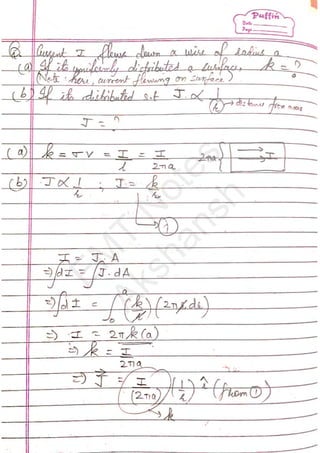 Puffin
Date
Page
Q. Current I flows down a wire of radius a
(a) If its uniformly distributed a surface, k = ?
(Note: here, current flowing on surface)
(b) If its distributed s.t J ∝ 1/r → distance from axis
J = ?
(a) k = σV = I/l = I/2πa 2πa { → I
(b) J ∝ 1/r ; J = k/r
→ ①
I = J.A
⇒ ∫dI = ∫J.dA
⇒ ∫dI = ∫₀ᵃ (k/r) (2πr.dr)
⇒ I = 2πk(a)
⇒ k = I/2πa
⇒ J = (I/(2πa)) (1/r) r̂ (from ①)
→ k
Notes
Akshansh